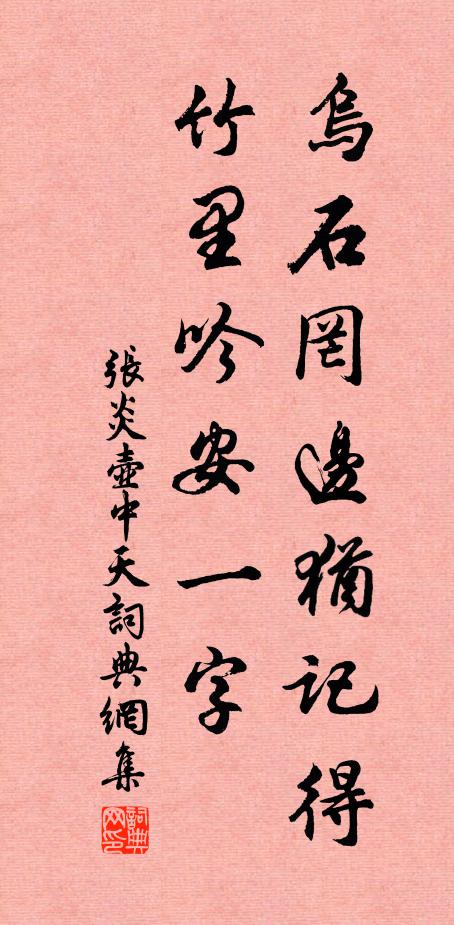 烏石罔邊猶記得
竹里吟安一字
張炎壺中天詞典網集
詞典网印